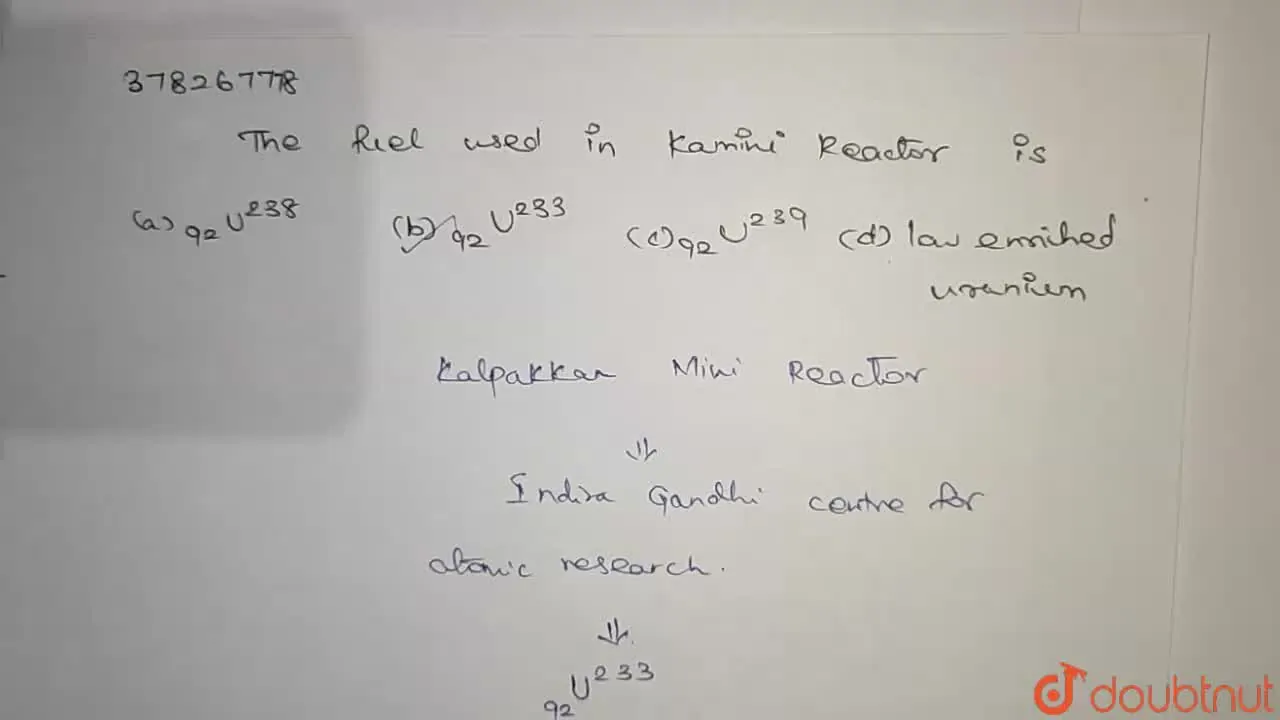 378267778
The fuel used in Kamini Reactor is
(a) ₉₂U²³⁸ (b) ₉₂U²³³ (c) ₉₂U²³⁹ (d) low enriched
uranium
Kalpakkam Mini Reactor
⇓
Indira Gandhi centre for
atomic research.
⇓
₉₂U²³³
doubtnut